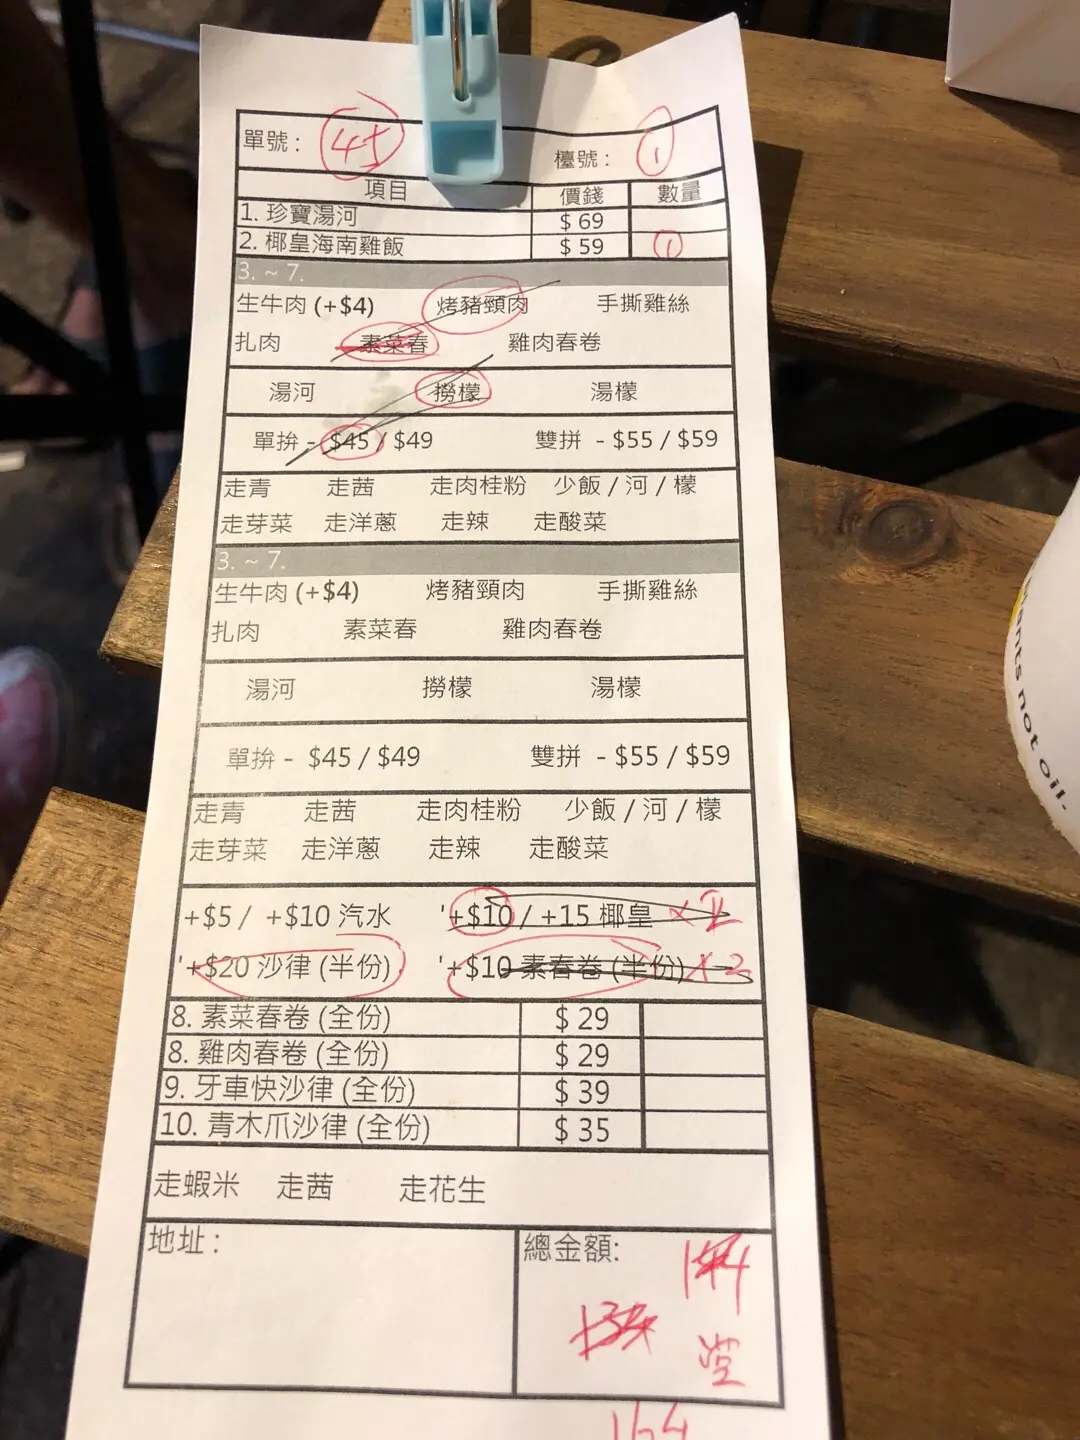 單號: 45 檯號: 1
項目 價錢 數量
1. 珍寶湯河 $ 69
2. 椰皇海南雞飯 $ 59 1
3. ~ 7.
生牛肉 (+$4) 烤豬頸肉 手撕雞絲
扎肉 素菜春 雞肉春卷
湯河 撈檬 湯檬
單拚 - $45 / $49 雙拼 - $55 / $59
走青 走茜 走肉桂粉 少飯 / 河 / 檬
走芽菜 走洋蔥 走辣 走酸菜
3. ~ 7.
生牛肉 (+$4) 烤豬頸肉 手撕雞絲
扎肉 素菜春 雞肉春卷
湯河 撈檬 湯檬
單拚 - $45 / $49 雙拼 - $55 / $59
走青 走茜 走肉桂粉 少飯 / 河 / 檬
走芽菜 走洋蔥 走辣 走酸菜
+$5 / +$10 汽水 '+$10 / +15 椰皇 x
'+$20 沙律 (半份) '+$10 素春卷 (半份) x2
8. 素菜春卷 (全份) $ 29
8. 雞肉春卷 (全份) $ 29
9. 牙車快沙律 (全份) $ 39
10. 青木爪沙律 (全份) $ 35
走蝦米 走茜 走花生
地址: 總金額:
堂
164
ants not oil-